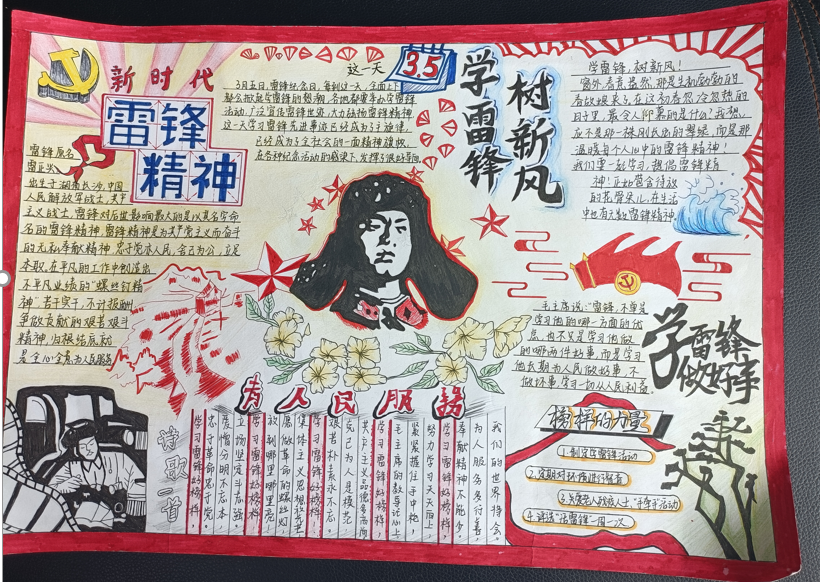 新时代
雷锋
精神
雷锋原名
雷正兴
出生于湖南长沙,中国
人民解放军战士,共产
主义战士,雷锋对后世影响最大的是以其名字命
名的雷锋精神,雷锋精神是为共产党主义而奋斗
的无私奉献精神,忠于党和人民,舍己为公,立足
本职,在平凡的工作中创造出
不平凡业绩的“螺丝钉精
神”苦干实干,不计报酬,
争做贡献的艰苦奋斗
精神,归根结底就
是全心全意为人民服务
这一天
3.5
3月五日,雷锋纪念日,每到这一天,全国上下
都会掀起学雷锋的热潮,各地都要举办学雷锋
活动,广泛宣传雷锋世迹,大力弘扬雷锋精神
这一天学习雷锋先进事迹已经成为了主旋律,
已经成为了全社会的一面精神旗帜
在各种纪念活动的感染下,发挥了很好导向
学雷锋
树新风
学雷锋,树新风!
窗外春意盎然,那是生机勃勃的
春姑娘来了,在这初春忽冷忽热的
日子里,最令人仰慕的是什么?我想,
应不是那一抹刚长出的翠绿,而是那
温暖每个人心中的雷锋精神!
我们要一起学习,提倡雷锋精
神!正如含苞待放
的花骨朵儿,在生活
中也有无数雷锋精神
毛主席说:“雷锋,不单是
学习他的哪一方面的优
点,也不只是学习他做
的哪两件好事,而是学习
他长期为人民做好事,不
做坏事,学习一切从人民利益
学雷锋
做好事
为人民服务
诗歌一首
我们的世界将会。
为人服务多行善,
奉献精神不能少。
学习雷锋好榜样,
努力学习天天向上,
紧紧握住手中枪,
毛主席的教导记心上
学习雷锋好榜样,
共产主义品德多高尚
克己为人是模范
艰苦朴素永不忘。
学习雷锋好榜样
集体主义思想放光芒
愿做革命的螺丝钉,
放到哪里哪里亮
学习雷锋好榜样
立场坚定斗志强
爱憎分明不忘本,
忠于革命忠于党
学习雷锋好榜样
榜样的力量
1.制定学雷锋活动
2.定期对环境进行维善
3.关爱老人,残疾人士,“手牵手”活动
4.评选“活雷锋”一周一次